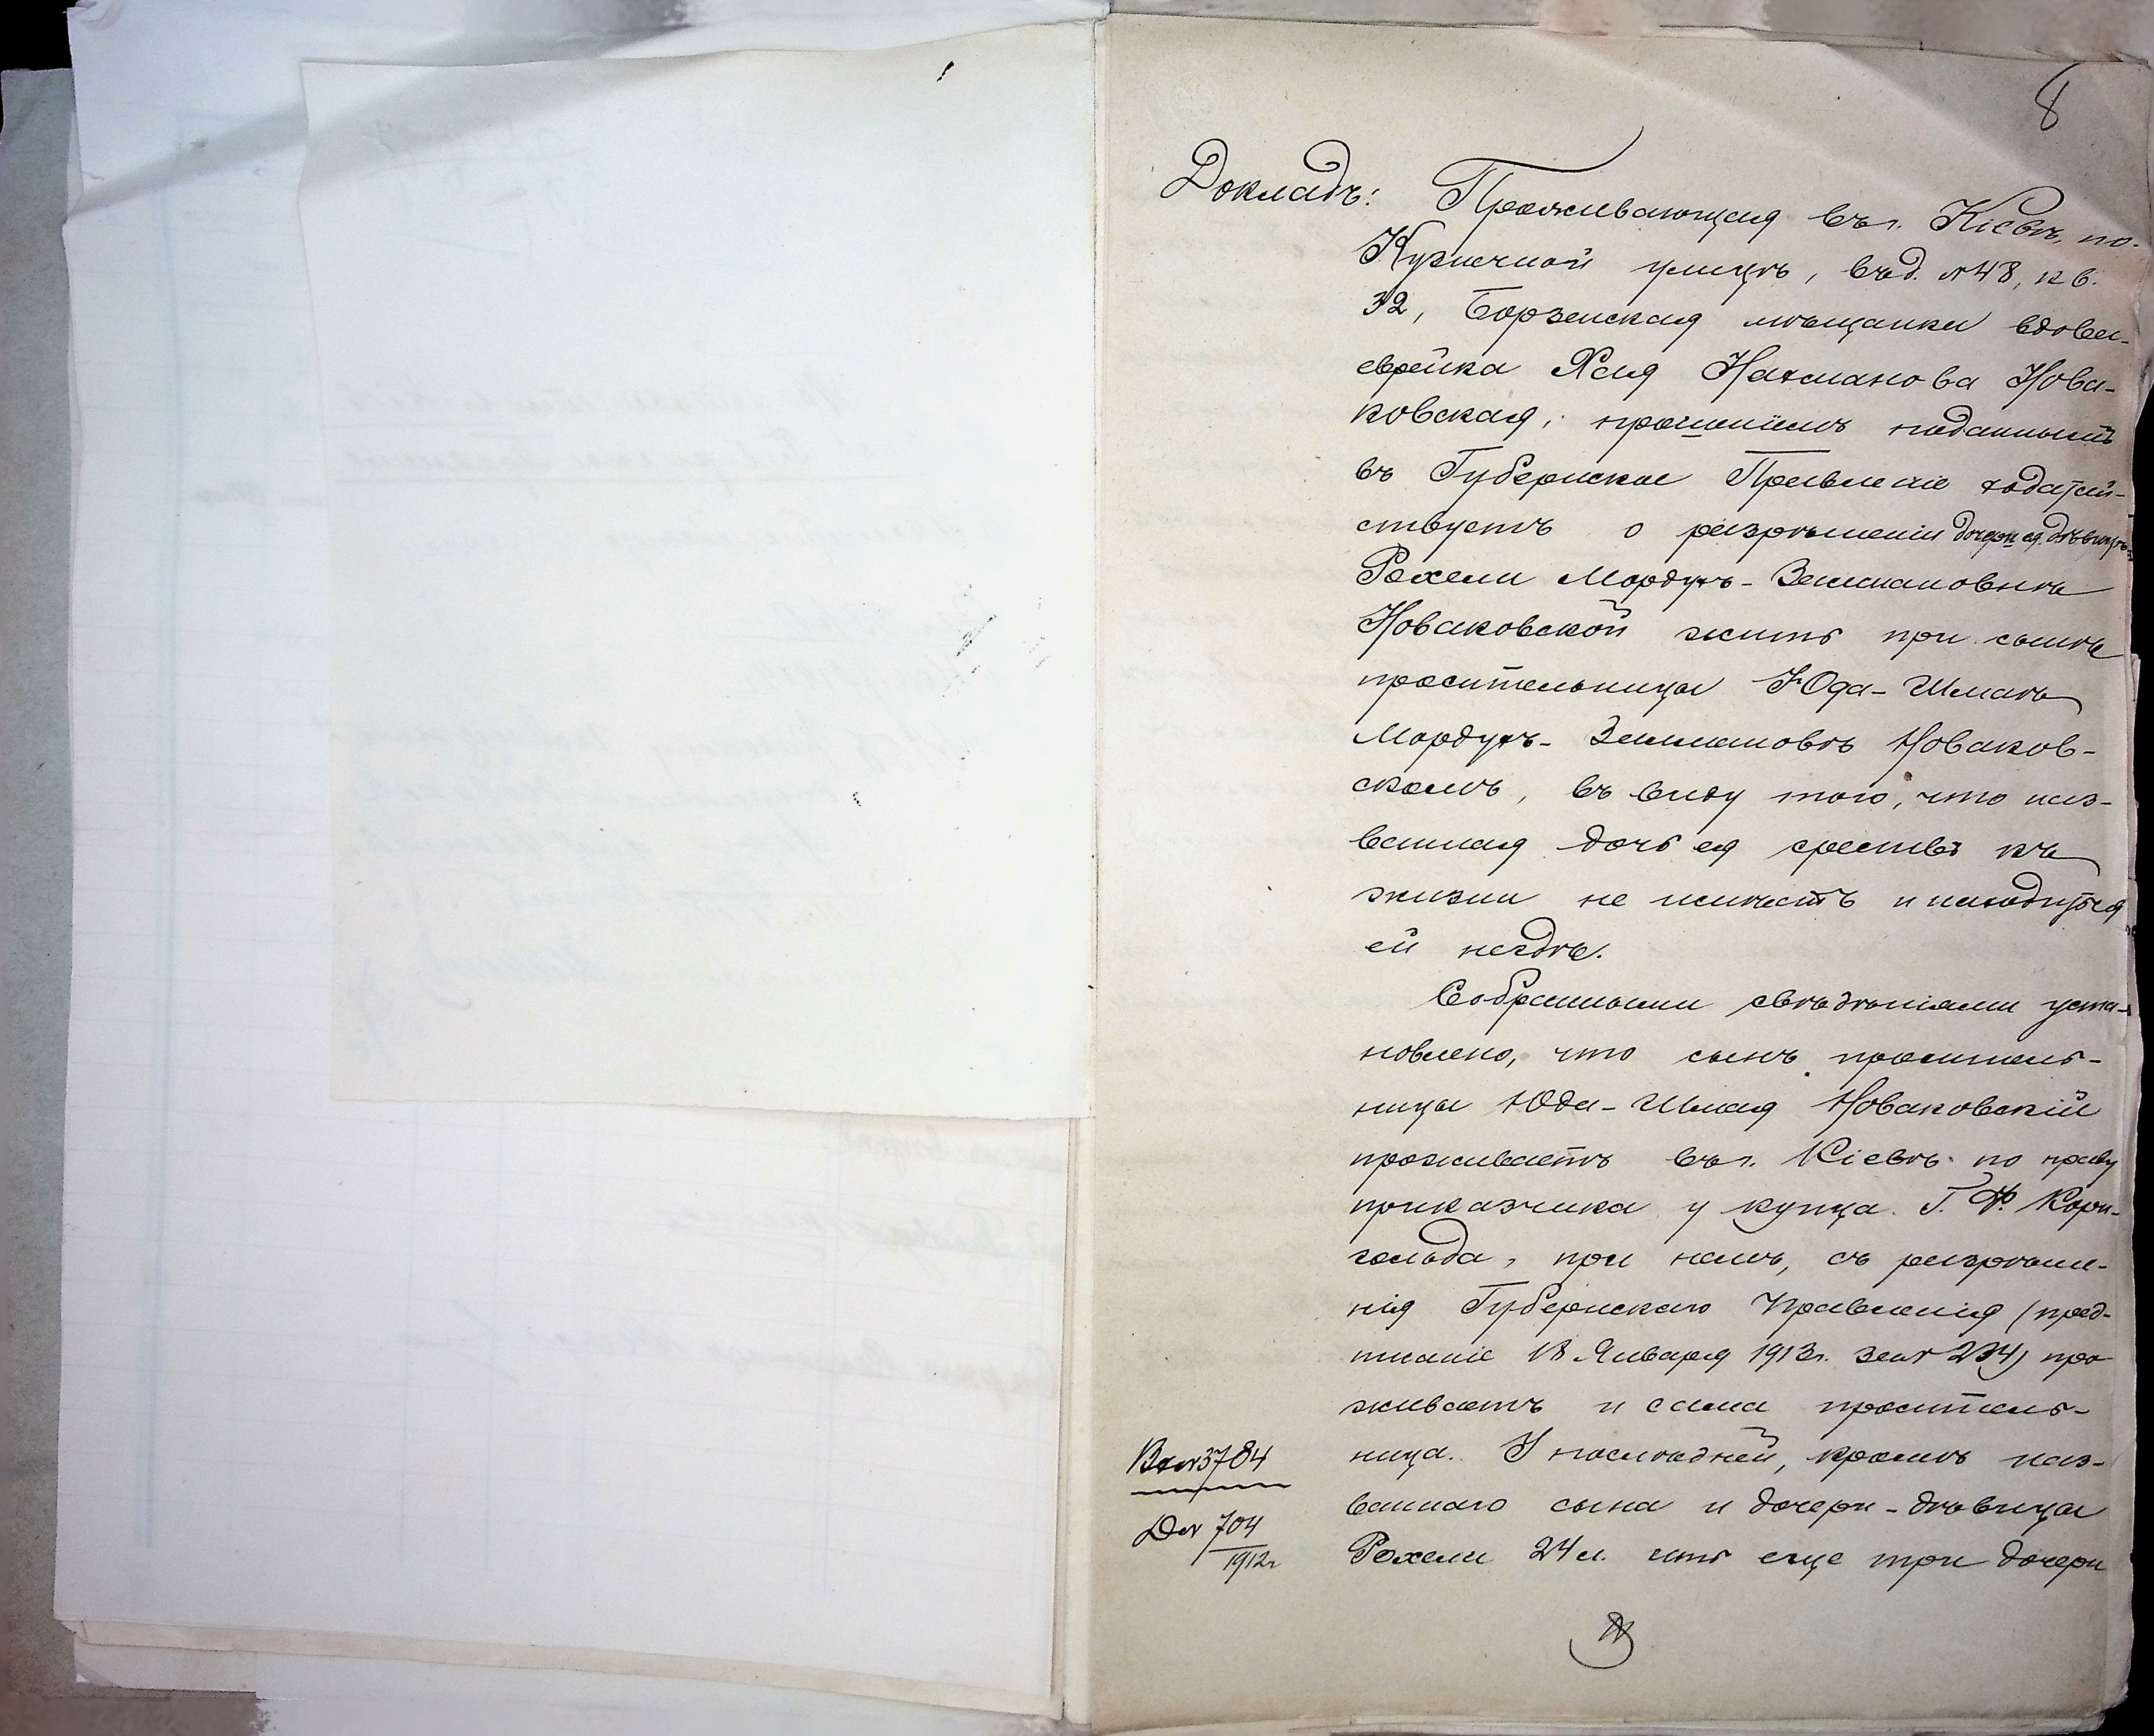 8
Докладъ: Проживающая въ г. Кіевѣ, по
Кузнечной улицѣ, въ д. №48, кв.
32, Борзенская мѣщанка вдова
еврейка Хая Нахманова Нова-
ковская, прошеніемъ поданнымъ
въ Губернское Правленіе ходатай-
ствуетъ о разрѣшеніи дочери ея дѣвицѣ
Рохели Мордухъ-Зелмановнѣ
Новаковской жить при сынѣ
просительницы Юда-Шмаѣ
Мордухъ-Зелмановѣ Новаков-
скомъ, въ виду того, что наз-
ванная дочь ея средствъ къ
жизни не имѣетъ и находиться
ей негдѣ.
Собранными свѣдѣніями уста-
новлено, что сынъ проситель-
ницы Юда-Шмая Новаковскій
проживаетъ въ г. Кіевѣ по праву
приказчика у купца Г. Ф. Корн-
гольда, при немъ, съ разрѣше-
нія Губернскаго Правленія (пред-
писаніе 18 Января 1913 г. за № 234) про
живаетъ и сама проситель-
ница. У послѣдней, кромѣ наз-
ваннаго сына и дочери-дѣвицы
Рохели 24 л. есть еще три дочери
Вх № 3784
Д № 704
1912 г